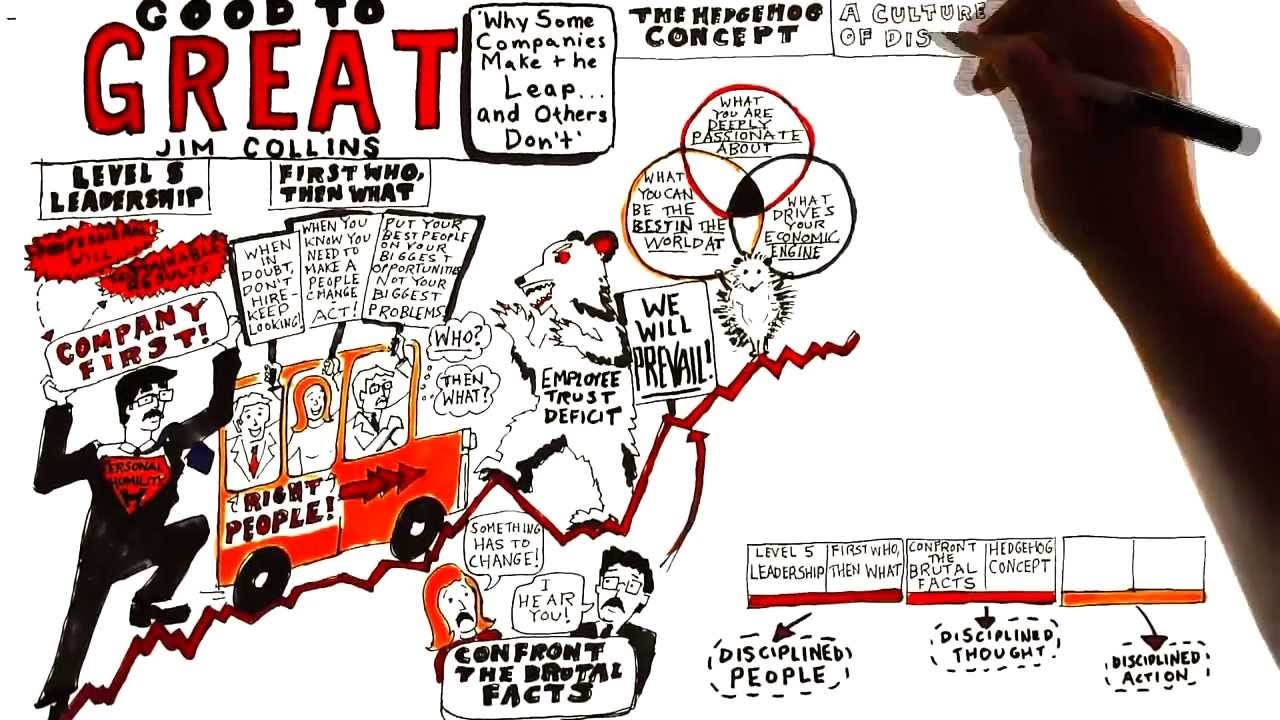 GOOD TO
GREAT
JIM COLLINS
'Why Some
Companies
Make the
Leap...
and Others
Don't'
THE HEDGEHOG
CONCEPT
A CULTURE
OF DIS
LEVEL 5
LEADERSHIP
FIRST WHO,
THEN WHAT
WILL
RESULTS
COMPANY
FIRST!
PERSONAL
HUMILITY
WHEN
IN
DOUBT,
DON'T
HIRE-
KEEP
LOOKING!
WHEN YOU
KNOW YOU
NEED TO
MAKE A
PEOPLE
CHANGE
ACT!
PUT YOUR
BEST PEOPLE
ON YOUR
BIGGEST
OPPORTUNITIES
NOT YOUR
BIGGEST
PROBLEMS
WHO?
THEN
WHAT?
RIGHT
PEOPLE!
EMPLOYEE
TRUST
DEFICIT
WE
WILL
PREVAIL!
WHAT
YOU ARE
DEEPLY
PASSIONATE
ABOUT
WHAT
YOU CAN
BE THE
BEST IN THE
WORLD AT
WHAT
DRIVES
YOUR
ECONOMIC
ENGINE
SOMETHING
HAS TO
CHANGE!
I
HEAR
YOU!
CONFRONT
THE BRUTAL
FACTS
LEVEL 5
LEADERSHIP
FIRST WHO,
THEN WHAT
CONFRONT
THE
BRUTAL
FACTS
HEDGEHOG
CONCEPT
DISCIPLINED
PEOPLE
DISCIPLINED
THOUGHT
DISCIPLINED
ACTION